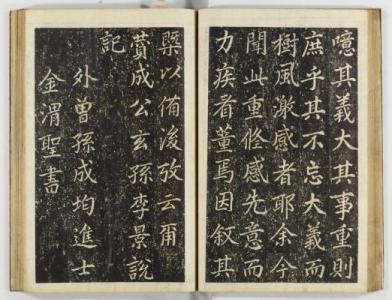 噫其義大其事重則
庶乎其不忘大義而
樹風激感者耶余今
聞此重修感先意而
力疾者董焉因敘其
槩以備後攷云爾
蕡成公玄孫李景說
記
外曾孫成均進士
金渭聖書